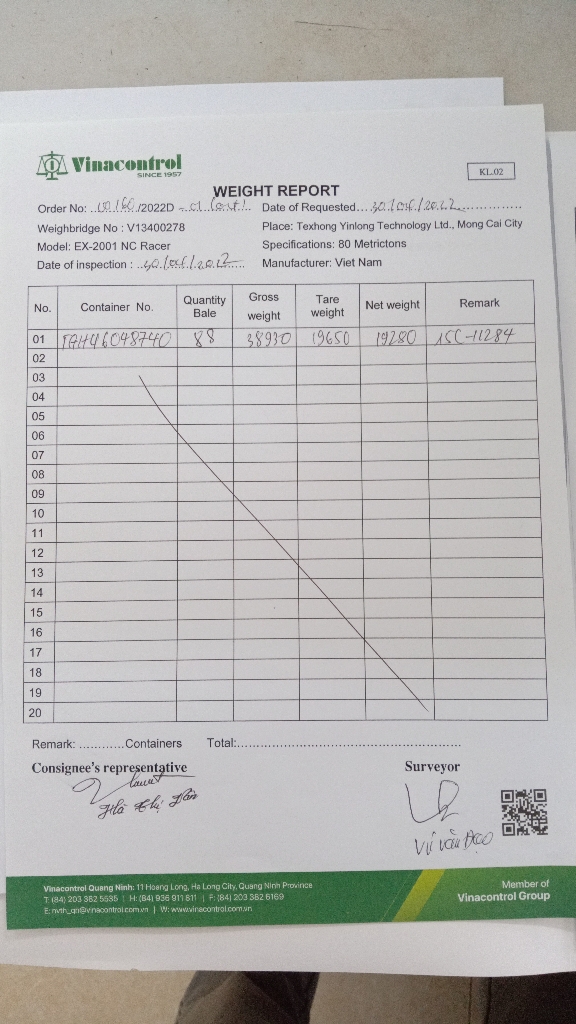 Vinacontrol
SINCE 1957
KL.02
WEIGHT REPORT
Order No: /2022D - 01 Date of Requested
Weighbridge No : V13400278 Place: Texhong Yinlong Technology Ltd., Mong Cai City
Model: EX-2001 NC Racer Specifications: 80 Metrictons
Date of inspection : Manufacturer: Viet Nam
No. Container No. Quantity Bale Gross weight Tare weight Net weight Remark
01 88 38930 19650 19280 ISC-11284
02
03
04
05
06
07
08
09
10
11
12
13
14
15
16
17
18
19
20
Remark: ............Containers Total:......................................................
Consignee's representative Surveyor
Vinacontrol Quang Ninh: 11 Hoang Long, Ha Long City, Quang Ninh Province
T: (84) 203 382 5535 | H: (84) 936 911 811 | F: (84) 203 382 6169
E: nvth_qn@vinacontrol.com.vn | W: www.vinacontrol.com.vn
Member of
Vinacontrol Group